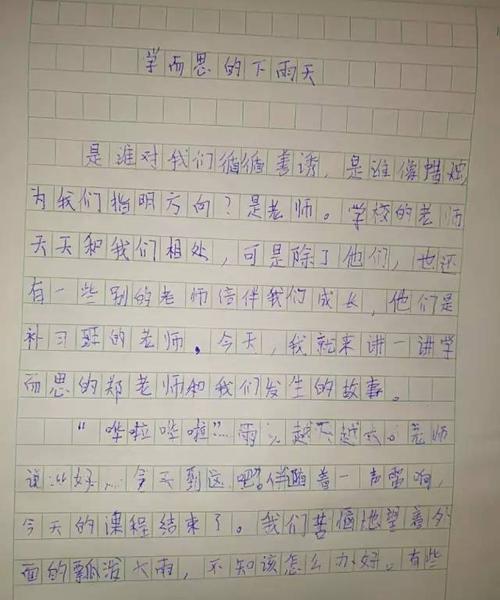 学而思的下雨天
是谁对我们循循善诱，是谁像蜡烛
为我们指明方向？是老师。学校的老师
天天和我们相处，可是除了他们，也还
有一些别的老师陪伴我们成长，他们是
补习班的老师。今天，我就来讲一讲学
而思的郑老师和我们发生的故事。
“哗啦哗啦”……雨越下越大。老师
说：“好……今天到这吧。”伴随着一声雷响，
今天的课程结束了。我们苦恼地望着外
面的瓢泼大雨，不知该怎么办好。有些